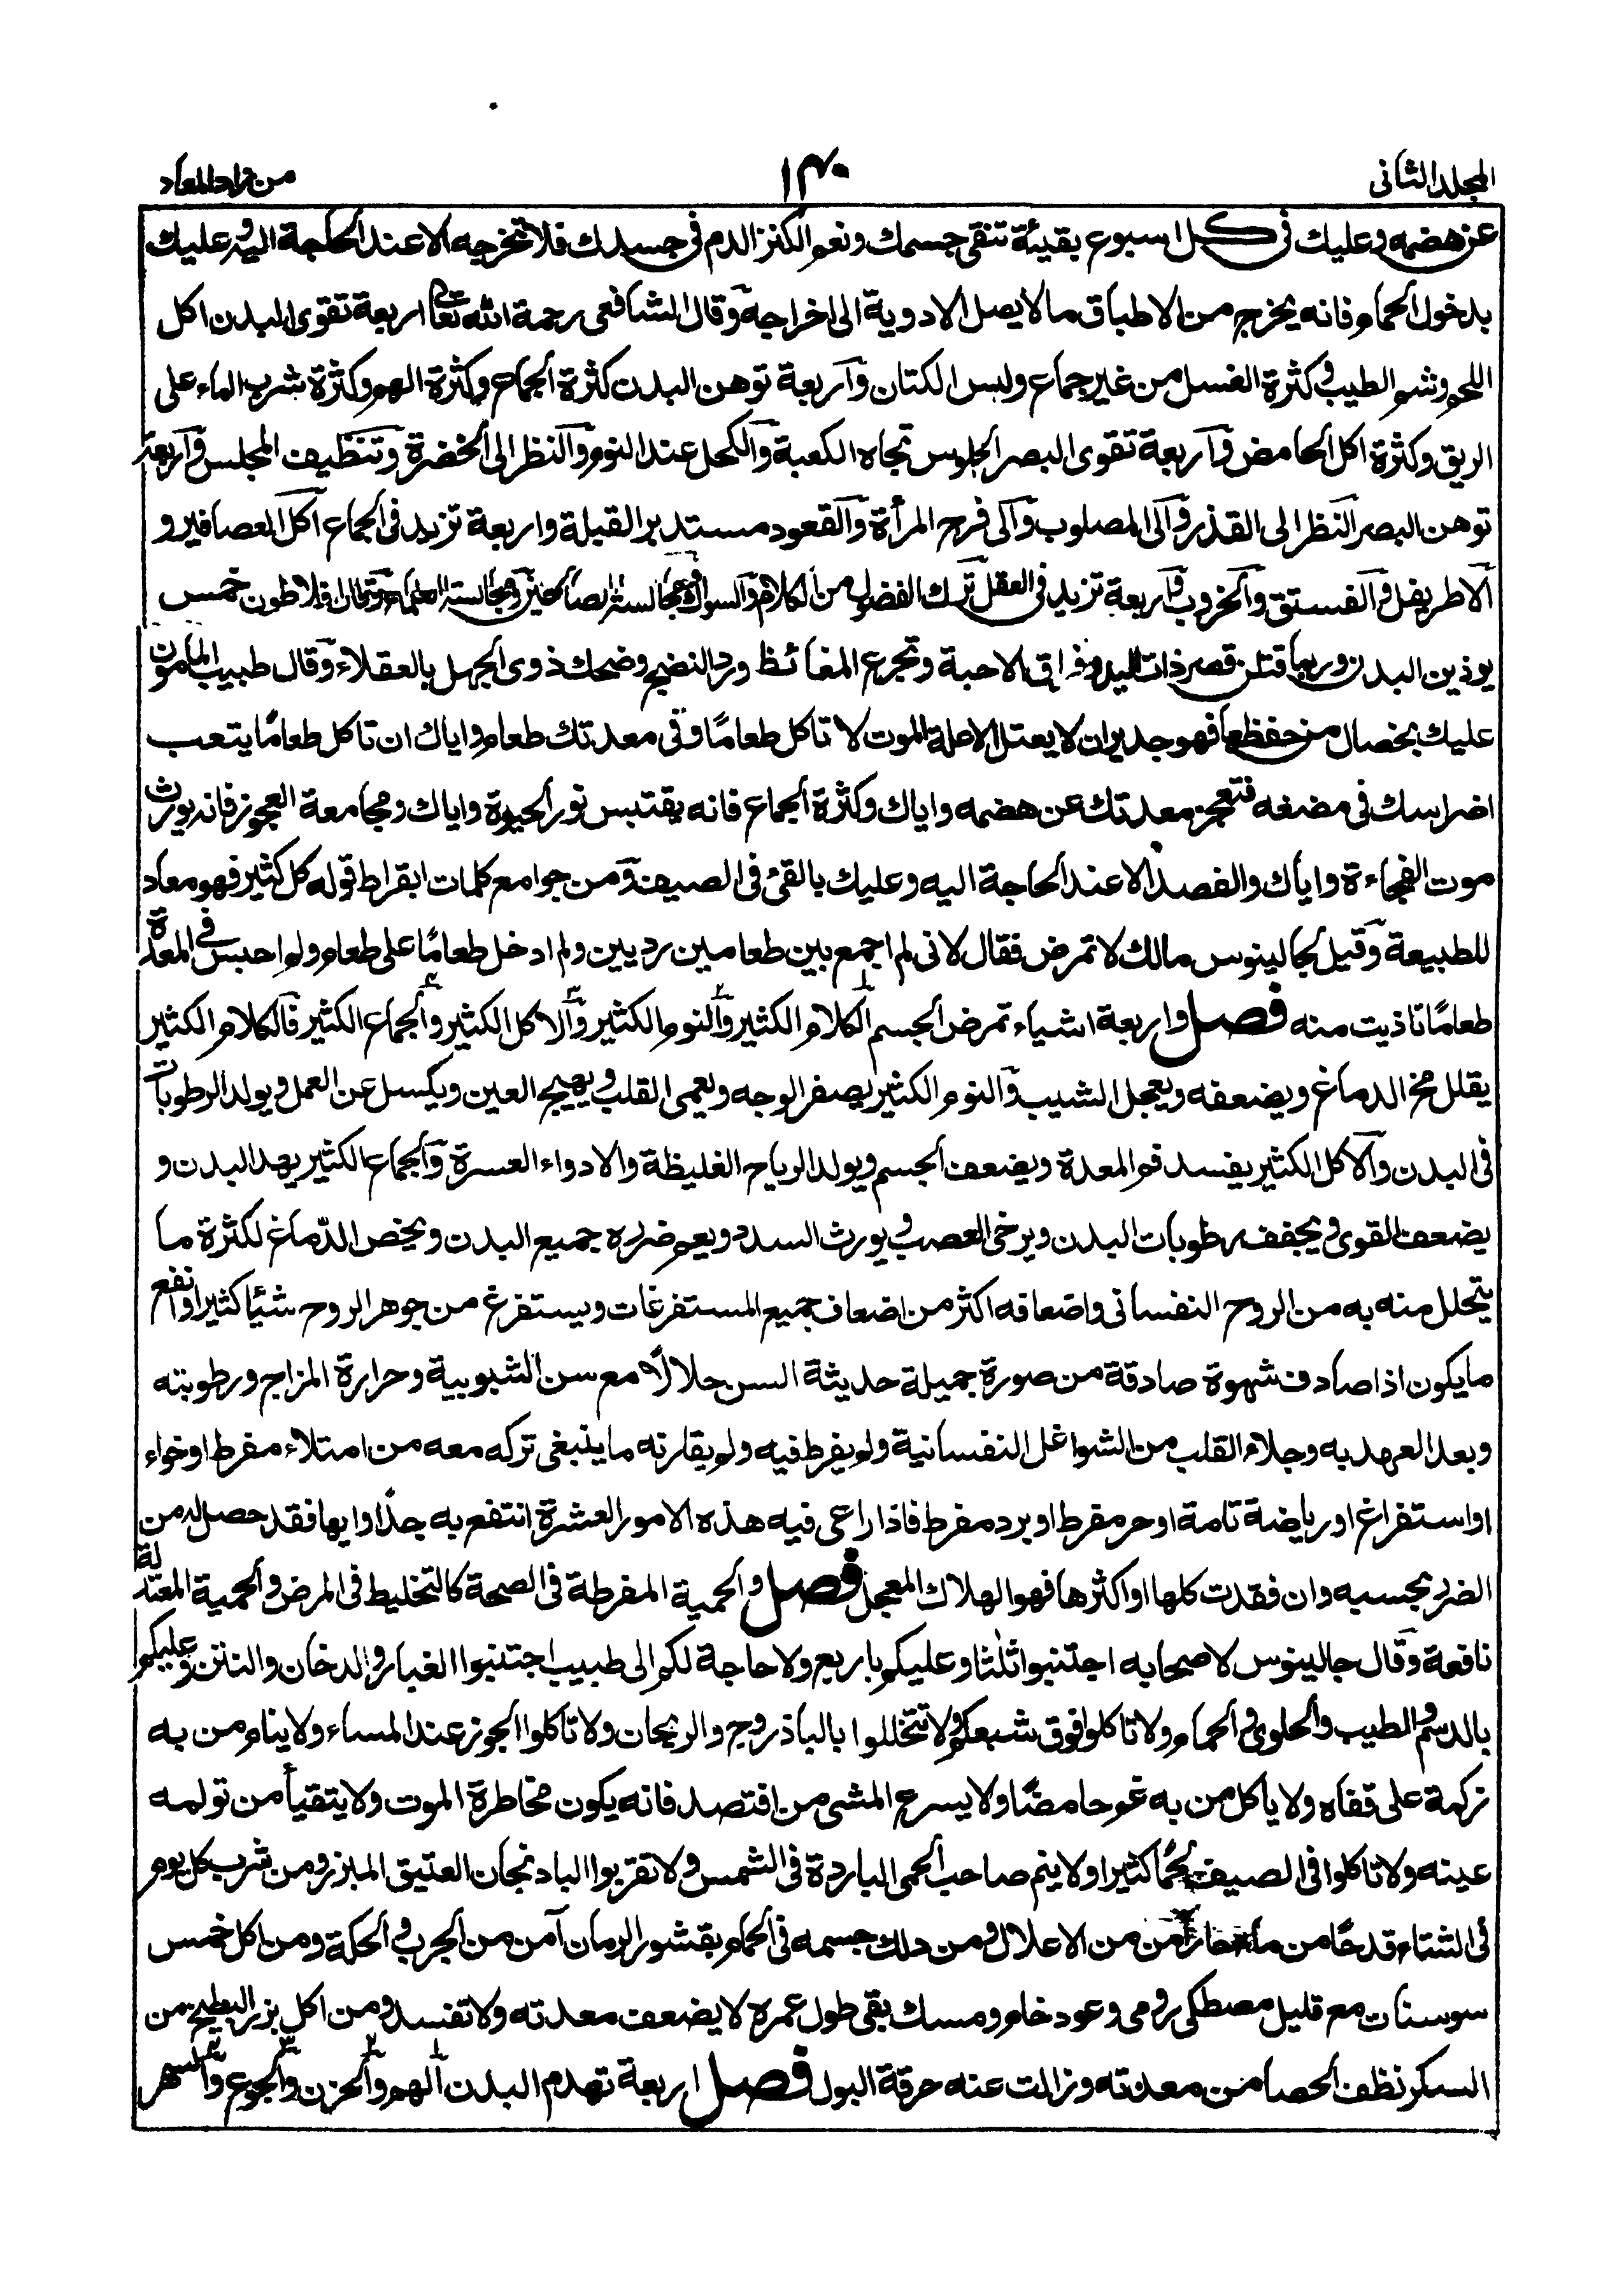 المجلد الثانى
١٣٠
من زاد المعاد
عن هضمه وعليك فى كل اسبوع بقيئة تنقى جسمك ونعم الكنز الدم فى جسدك فلا تخرجه الا عند الحاجة اليه وعليك
بدخول الحمام فانه يخرج من الاطباق ما لا يصل الادوية الى اخراجه وقال الشافعى رحمة الله تعالى اربعة تقوى البدن اكل
اللحم وشم الطيب وكثرة الغسل من غير جماع ولبس الكتان واربعة توهن البدن كثرة الجماع وكثرة الهم وكثرة شرب الماء على
الريق وكثرة اكل الحامض واربعة تقوى البصر الجلوس تجاه الكعبة والكحل عند النوم والنظر الى الخضرة وتنظيف المجلس واربعة
توهن البصر النظر الى القذر والى المصلوب والى فرج المرأة والقعود مستدبر القبلة واربعة تزيد فى الجماع اكل العصافير و
الاطريفل والفستق والخروب واربعة تزيد فى العقل ترك الفضول من الكلام والسواك ومجالسة الصالحين ومجالسة العلماء وقال افلاطون خمس
يوذين البدن وربما قتلن قصر ذات اليد وفراق الاحبة وتجرع المغائظ ورد النضح وضحك ذوى الجهل بالعقلاء وقال طبيب المامون
عليك بخصال من حفظها فهو جدير ان لا يعتل الا علة الموت لا تاكل طعامًا وفى معدتك طعام واياك ان تاكل طعامًا يتعب
اضراسك فى مضغه فتعجز معدتك عن هضمه واياك وكثرة الجماع فانه يقتبس نور الحيوة واياك ومجامعة العجوز فانه يورث
موت الفجاءة واياك والفصد الا عند الحاجة اليه وعليك بالقئ فى الصيف ومن جوامع كلمات ابقراط قوله كل كثير فهو معاد
للطبيعة وقيل لجالينوس مالك لا تمرض فقال لانى لم اجمع بين طعامين رديين ولم ادخل طعامًا على طعام ولم احبس فى المعدة
طعامًا تاذيت منه فصل واربعة اشياء تمرض الجسم الكلام الكثير والنوم الكثير والاكل الكثير والجماع الكثير فالكلام الكثير
يقلل مخ الدماغ ويضعفه ويعجل الشيب والنوم الكثير يصفر الوجه ويعمى القلب ويهيج العين ويكسل عن العمل ويولد الرطوبات
فى البدن والاكل الكثير يفسد فم المعدة ويضعف الجسم ويولد الرياح الغليظة والادواء العسرة والجماع الكثير يهد البدن و
يضعف القوى ويجفف رطوبات البدن ويرخى العصب ويورث السدد ويعم ضرره جميع البدن ويخص الدّماغ لكثرة ما
يتحلل منه به من الروح النفسانى واضعافه اكثر من اضعاف جميع المستفرغات ويستفرغ من جوهر الروح شيئا كثيرا وانفع
ما يكون اذا صادف شهوة صادقة من صورة جميلة حديثة السن حلالًا مع سن الشبوبية وحرارة المزاج ورطوبته
وبعد العهد به وجلاء القلب من الشواغل النفسانية ولم يفرط فيه ولم يقارنه ما ينبغى تركه معه من امتلاء مفرط او خواء
او استفراغ او رياضة تامة او حر مفرط او برد مفرط فاذا راعى فيه هذه الامور العشرة انتفع به جدًا وايها فقد حصل له من
الضرر بحسبه وان فقدت كلها او اكثرها فهو الهلاك المعجل فصل والحمية المفرطة فى الصحة كالتخليط فى المرض والحمية المعتدلة
نافعة وقال جالينوس لاصحابه اجتنبوا ثلثا وعليكم باربع ولا حاجة لكم الى طبيب اجتنبوا الغبار والدخان والنتن وعليكم
بالدسم والطيب والحلوى والحمام ولا تاكلوا فوق شبعكم ولا تتخللوا بالباذروج والريحان ولا تاكلوا الجوز عند المساء ولا ينام من به
زكمة على قفاه ولا ياكل من به غم حامضًا ولا يسرع المشى من افتصد فانه يكون مخاطرة الموت ولا يتقيأ من تولمه
عينه ولا تاكلوا فى الصيف لحمًا كثيرا ولا ينم صاحب الحمى الباردة فى الشمس ولا تقربوا الباذنجان العتيق المبزر ومن شرب كل يوم
فى الشتاء قدحًا من ماء حار أمن من الاعلال ومن دلك جسمه فى الحمام بقشور الرمان آمن من الجرب والحكة ومن اكل خمس
سوسنات مع قليل مصطكى رومى وعود خام ومسك بقى طول عمره لا يضعف معدته ولا تفسد ومن اكل بزر البطيخ من
السكر نظف الحصا من معدته وزالت عنه حرقة البول فصل اربعة تهدم البدن الهم والحزن والجوع والسهر